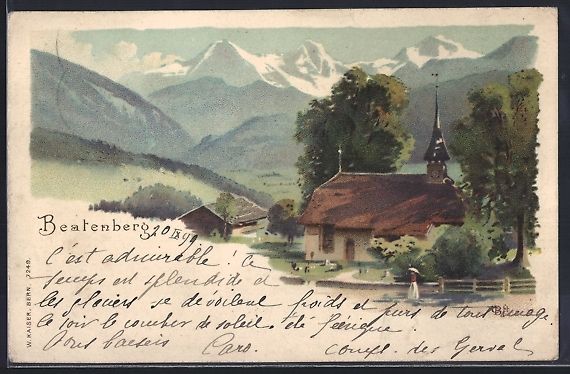 Beatenberg 20 IX 99
C'est admirable! Ce
temps est splendide et
les glaciers se dévoilant froids et purs de tout nuage
Le soir le coucher de soleil, été féerique.
Bons baisers Caro.
des
W. KAISER, BERN. 7249.